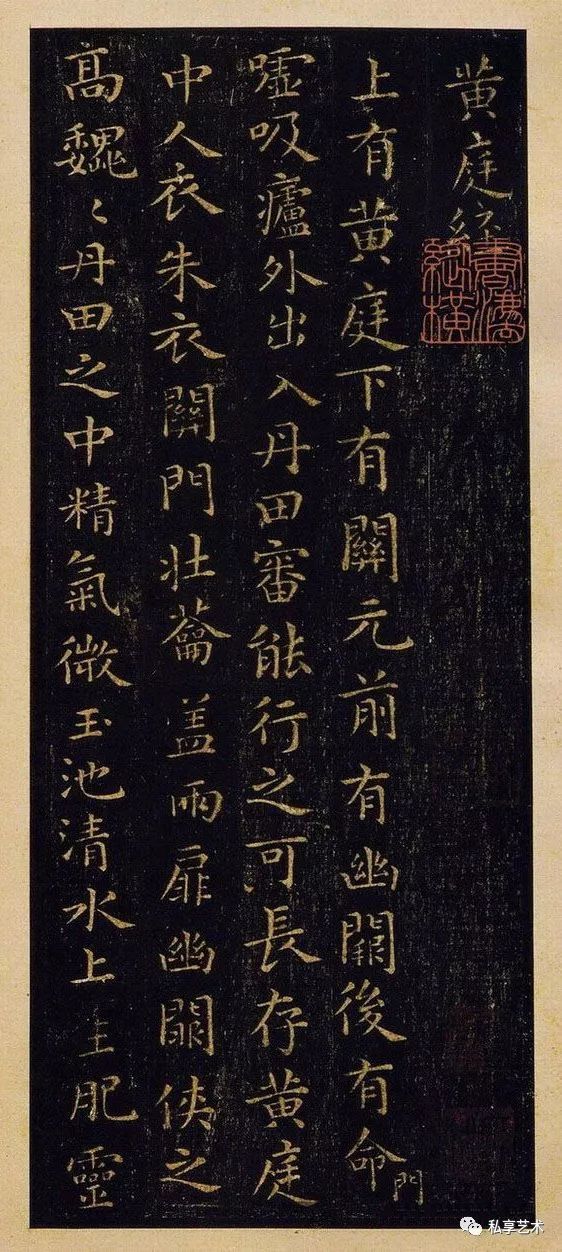 黄庭經
上有黄庭下有關元前有幽闕後有命門
嘘吸廬外出入丹田審能行之可長存黄庭
中人衣朱衣關門壯蘥盖兩扉幽闕俠之
高魏〻丹田之中精氣微玉池清水上生肥靈
私享艺术